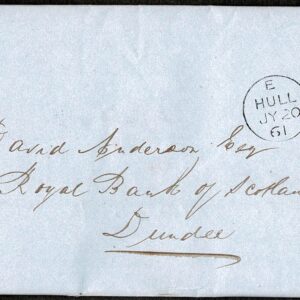 E
HULL
JY 20
61
David Anderson Esq
Royal Bank of Scotlan
Dundee